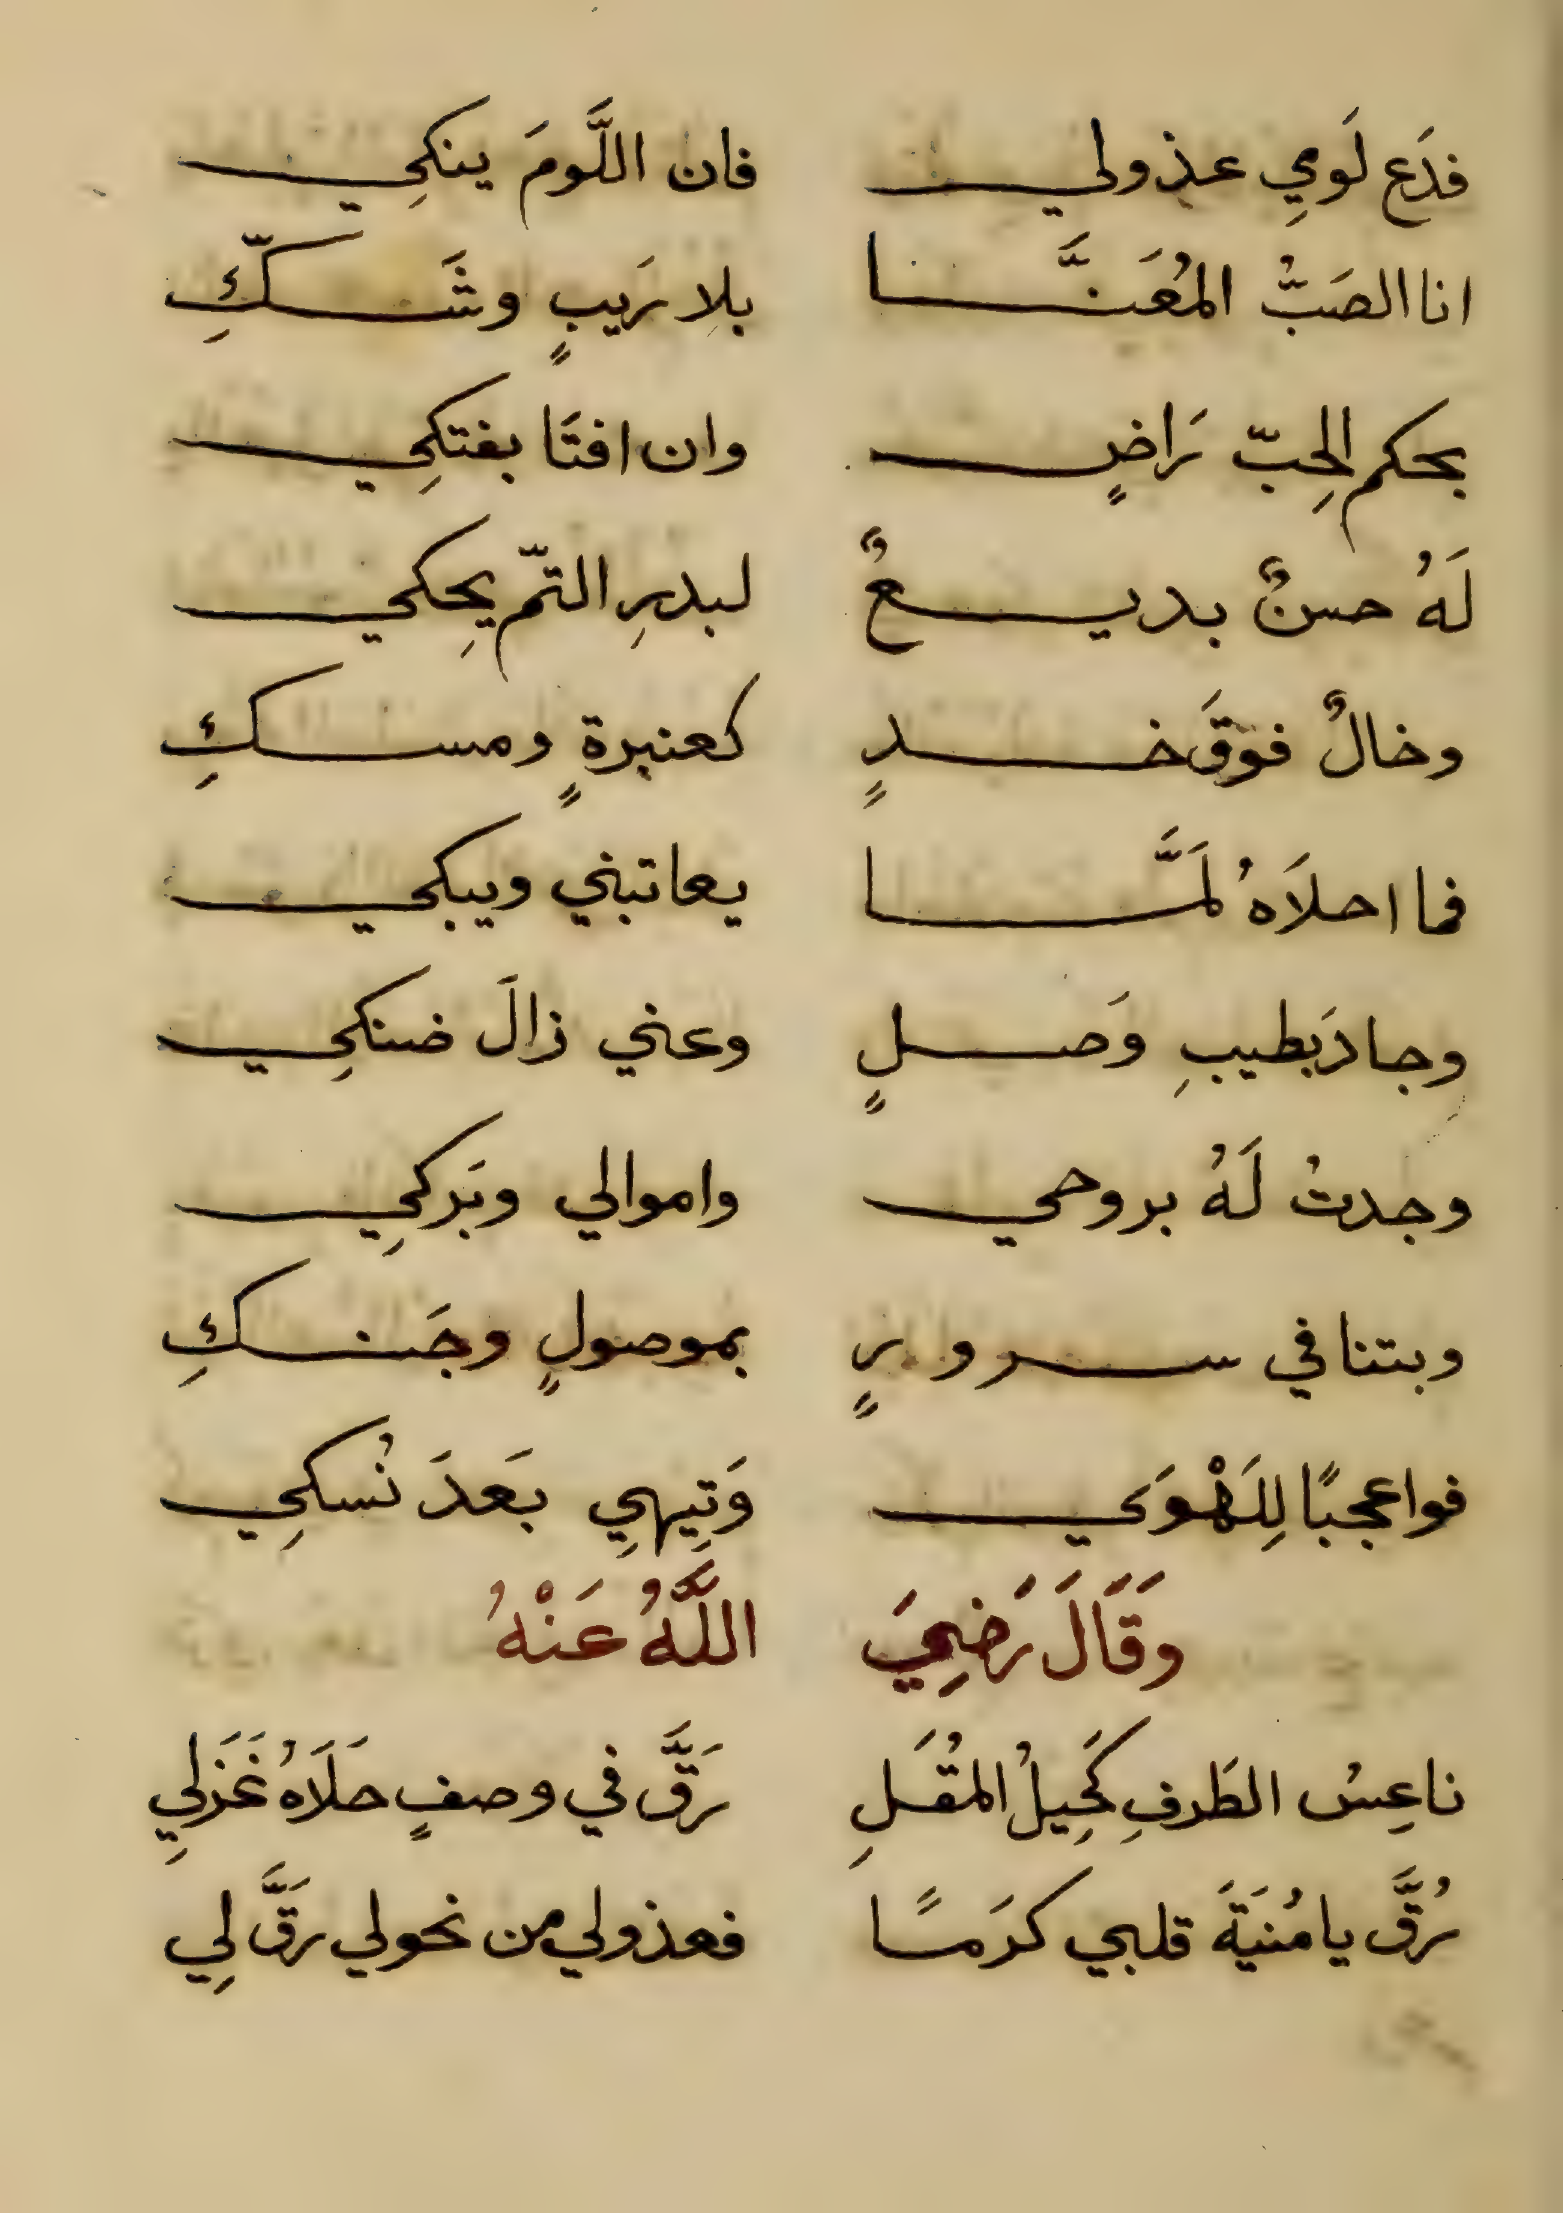 فدَع لَومِي عذولي فان اللَّومَ ينكِي
انا الصَبُّ المُعَنَّا بلا رَيبٍ وشَكِّ
بحكم الحِبّ رَاضٍ وان افتَا بفتكِي
لَهُ حسنٌ بديعٌ لبدرِ التمّ يحِكي
وخالٌ فوقَ خدٍ كعنبرةٍ ومسكِ
فما احلَاهُ لمَّا يعاتبني ويبكي
وجادَ بطيبِ وَصلٍ وعني زالَ ضنكِي
وجدتُ لَهُ بروحي واموالي وبَركِي
وبتنا في سرورٍ بموصولٍ وجَنكِ
فواعجبًا لِلَهْوَي وَتِيهِي بَعدَ نُسكِي
وَقَالَ رَضِيَ اللَّهُ عَنْهُ
ناعِسُ الطَرفِ كَحِيلُ المُقَلِ رَقَّ في وصفٍ حَلَاهُ غَزَلِي
رُقَّ يا مُنيَةَ قلبي كرَمًا فعذولي من نحولي رَقَّ لِي